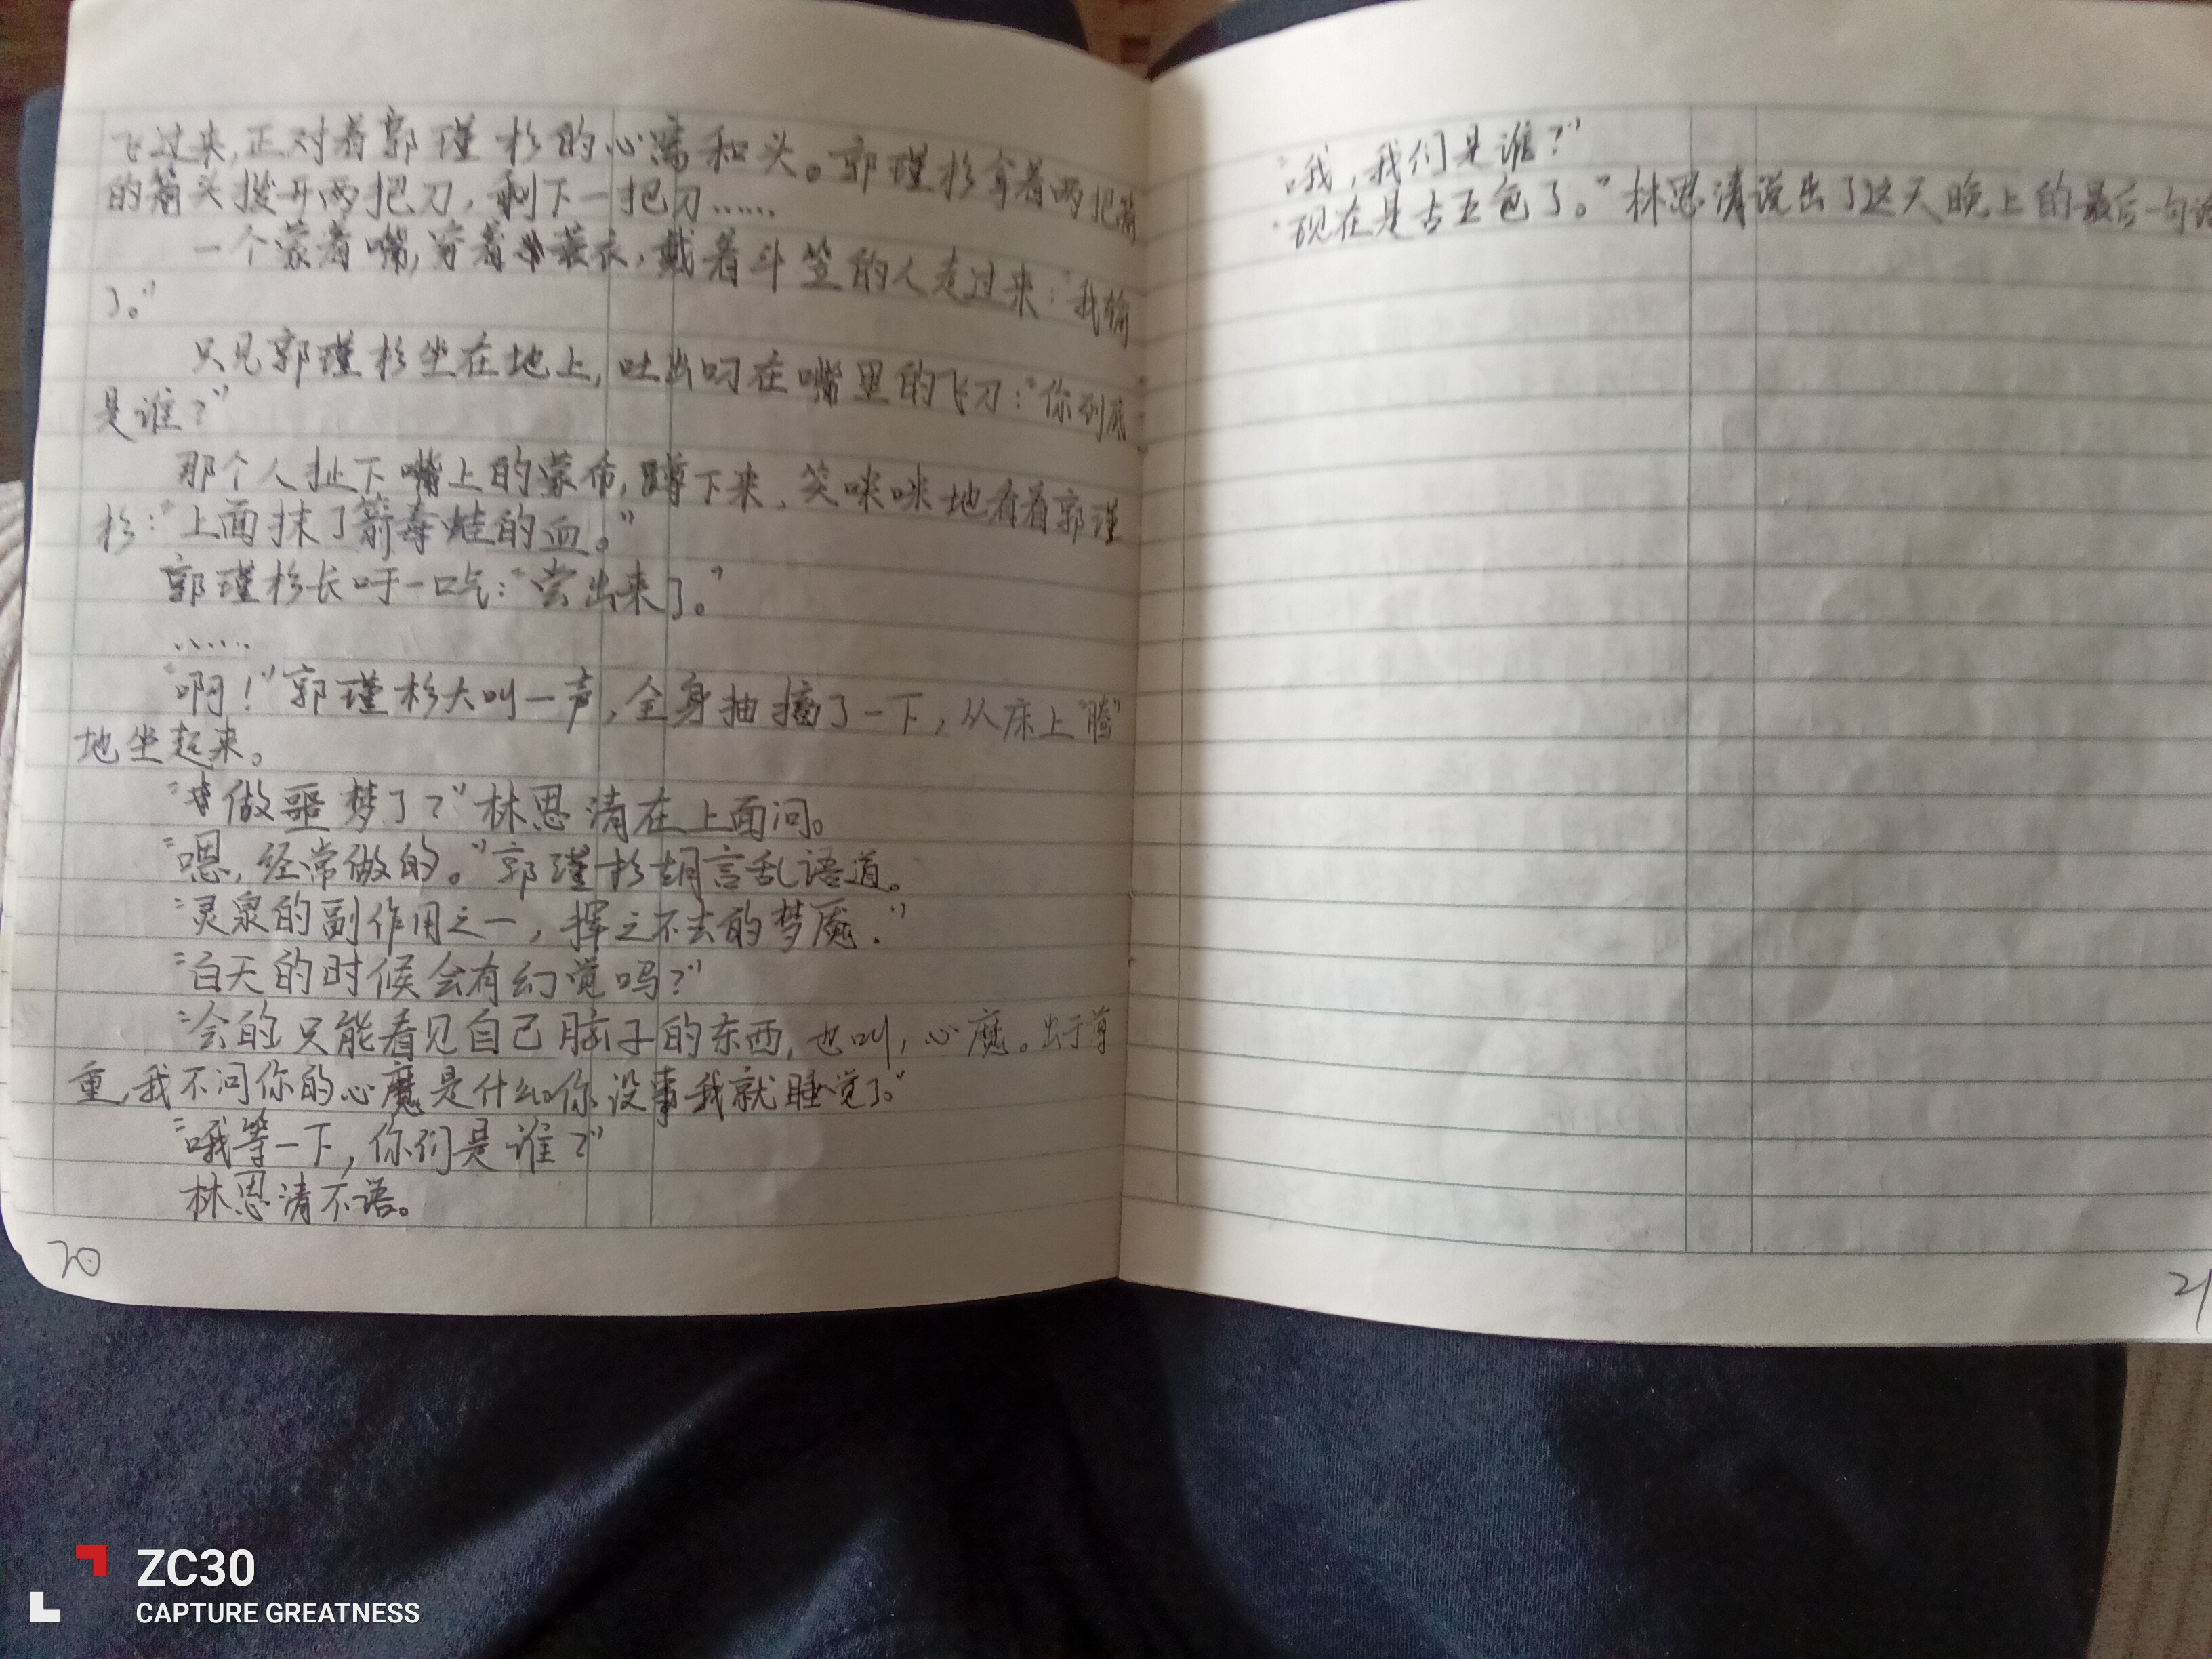 飞过来,正对着郭瑾杉的心窝和头。郭瑾杉拿着两把箭
的箭头拨开两把刀,剩下一把刀……
一个蒙着嘴,穿着蓑衣,戴着斗笠的人走过来:“我输
了。”
只见郭瑾杉坐在地上,吐出叼在嘴里的飞刀:“你到底
是谁?”
那个人扯下嘴上的蒙布,蹲下来,笑咪咪地看着郭瑾
杉:“上面抹了箭毒蛙的血。”
郭瑾杉长吁一口气:“尝出来了。”
……
“啊!”郭瑾杉大叫一声,全身抽搐了一下,从床上“腾”
地坐起来。
“做噩梦了?”林思清在上面问。
“嗯,经常做的。”郭瑾杉胡言乱语道。
“灵泉的副作用之一,挥之不去的梦魇.”
“白天的时候会有幻觉吗?”
“会的只能看见自己脑子的东西,也叫,心魔。出于尊
重,我不问你的心魔是什么。你没事我就睡觉了。”
“哦等一下,你们是谁?”
林思清不语。
20
“哦,我们是谁?”
“现在是古五包了。”林思清说出了这天晚上的最后一句话
21
ZC30
CAPTURE GREATNESS